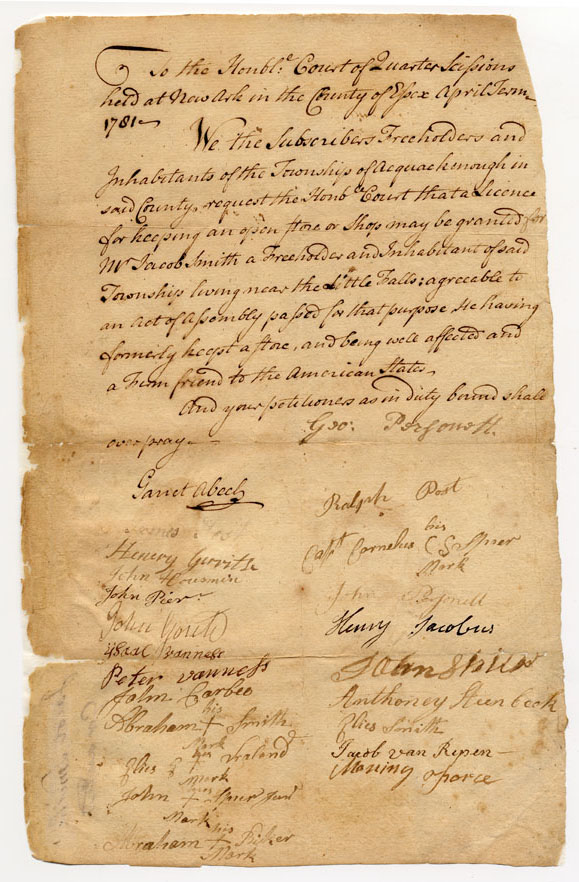 To the Honble. Court of Quarter Scissions
held at New Ark in the County of Essex April Term
1781
We the Subscribers Freeholders and
Inhabitants of the Township of Acquackenough in
said County, request the Honb. Court that a Licence
for keeping an open store or shop may be granted for
Mr. Jacob Smith a Freeholder and Inhabitant of said
Township living near the Little Falls; agreeable to
an Act of Assembly passed for that purpose, He having
formerly keept a store, and being well affected and
a Firm friend to the American States,
And your petitioners as in duty bound shall
ever pray
Geo:
Garret
Ralph Post
his
Henery Gerritse
Capt. Cornelius
Mark
John
John Pier
John
John
Henry Jacobus
Isaac Vanness
Peter Vanness
John Spier
John
Anthoney Steenbeck
his
Abraham + Smith
Mark
Elies Smith
his
Elies Vreland
Mark
Jacob van Ripen
his
John + Spier
Mark
his
Abraham +
Mark